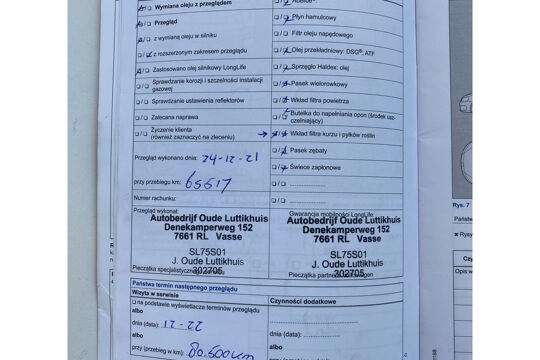 Wymiana oleju z przeglądem
Przegląd
z wymianą oleju w silniku
z rozszerzonym zakresem przeglądu
Zastosowano olej silnikowy LongLife
Sprawdzanie korozji i szczelności instalacji
gazowej
Sprawdzanie ustawienia reflektorów
Zalecana naprawa
Życzenie klienta
(również zaznaczyć na zleceniu)
Przegląd wykonano dnia: 24-12-21
przy przebiegu km: 65517
Numer rachunku:
Przegląd wykonał:
Autobedrijf Oude Luttikhuis
Denekamperweg 152
7661 RL Vasse
SL75S01
J. Oude Luttikhuis
302705
Płyn hamulcowy
Filtr oleju napędowego
Olej przekładniowy: DSG®, ATF
Sprzęgło Haldex: olej
Pasek wielorowkowy
Wkład filtra powietrza
Butelka do napełniania opon (środek usz-
czelniający)
Wkład filtra kurzu i pyłków roślin
Pasek zębaty
Świece zapłonowe
Gwarancja mobilności LongLife:
Autobedrijf Oude Luttikhuis
Denekamperweg 152
7661 RL Vasse
SL75S01
J. Oude Luttikhuis
302705
Państwa termin następnego przeglądu
Wizyta w serwisie
na podstawie wyświetlacza terminów przeglądu
albo
dnia (data): 12-22
albo
przy (przebieg w km): 80.500 km
Czynności dodatkowe
dnia (data):
albo
Rys. 7
Państw
Rysy
Opis w